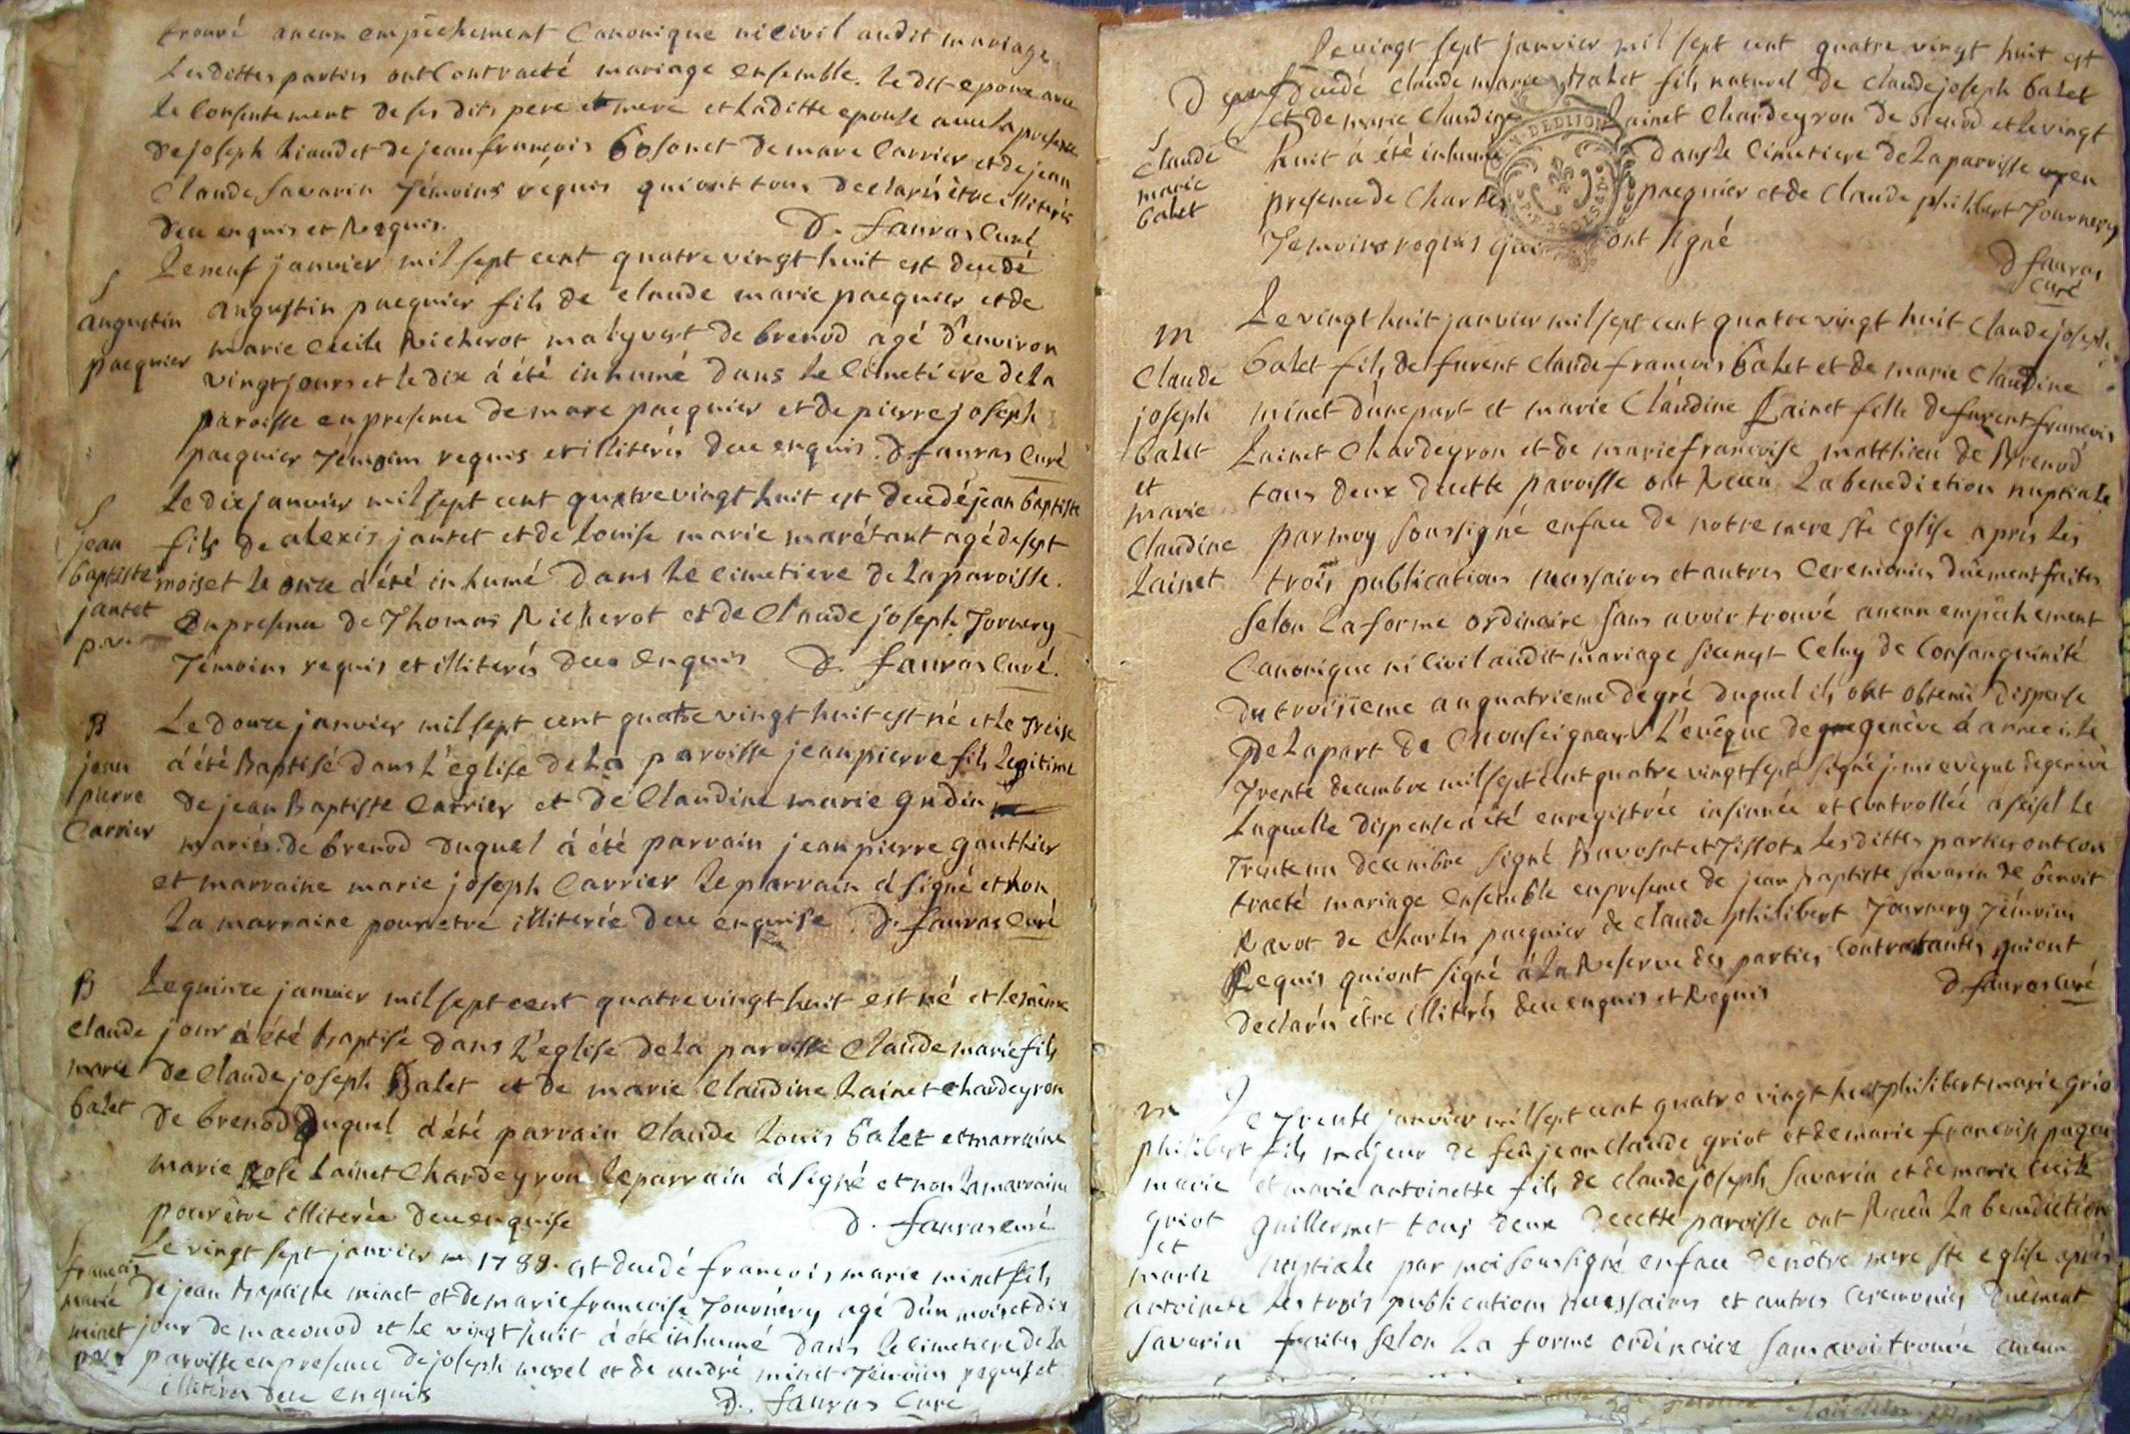 trouvé aucun empêchement Canonique ni civil audit mariage
Lesdittes parties ont Contracté mariage ensemble. le dit epoux avec
le Consentement de ses dits pere et mere et Laditte epouse avec la presence
de joseph et de jean françois bosonet de marc Carrier et de jean
Claude Savarin Témoins réquis qui ont tous declarés être illiterés
deu enquis et Requis.
D. fauras Curé
Le neuf janvier mil sept cent quatre vingt huit est decedé
S
augustin
pacquier
augustin pacquier fils de claude marie pacquier et de
marie Cecile Richerot de brenod agé d'environ
vingt jours et le dix à été inhumé dans le Cimetiere de La
paroisse en presence de marc pacquier et de pierre joseph
pacquier Témoins requis et illiterés deu enquis. D fauras Curé
S
jean
baptiste
jantet
p.v.
Le dix janvier mil sept cent quatre vingt huit est decedé jean baptiste
fils de alexis jantet et de Louise marie marétant agé de sept
mois et le onze à été inhumé dans le cimetiere de La paroisse.
En presence de Thomas Richerot et de Claude joseph Tornery
Témoins requis et illiterés deu Enquis D. fauras Curé.
B
jean
pierre
Carrier
Le douze janvier mil sept cent quatre vingt huit est né et le Treise
à été Baptisé dans L'eglise de La paroisse jean pierre fils Legitime
de jean Baptiste Carrier et de Claudine marie gudin
mariés de brenod duquel à été parrain jean pierre gauthier
et marraine marie joseph Carrier Le parrain à signé et non
La marraine pour etre illiterée deu enquise D. fauras Curé
B
Claude
marie
balet
Le quinze janvier mil sept cent quatre vingt huit est né et le même
jour à été baptisé dans L'eglise de La paroisse Claude marie fils
de Claude joseph Balet et de marie Claudine Lainet Chardeyron
de brenod Duquel à été parrain Claude Louis balet et marraine
marie Rose Lainet Chardeyron le parrain à signé et non la marraine
pour être illiterée deu enquise
D. fauras curé
S
francois
marie
minet
Le vingt sept janvier 1788. est decedé francois marie minet fils
de jean Baptiste minet et de marie francoise Tournéry agé d'un mois et dix
jour de maconod et le vingt huit à été inhumé dans le Cimetiere de La
paroisse en presence de joseph morel et de andré minet Témoins requis et
illiterés deu enquis
D. fauras Curé
Le vingt sept janvier mil sept cent quatre vingt huit est
S
Claude
marie
balet
decedé Claude marie Balet fils naturel de Claude joseph balet
et de marie Claudine Lainet Chardeyron de brenod et le vingt
huit à été inhumé dans le Cimetiere de La paroisse en
presence de Charles pacquier et de Claude philibert Tournery
Temoins requis qui ont signé
D fauras
curé
m
Claude
joseph
balet
et
marie
Claudine
Lainet
Le vingt huit janvier mil sept cent quatre vingt huit Claude joseph
balet fils de furent Claude francois balet et de marie Claudine
minet d'une part et marie Claudine Lainet fille de furent francois
Lainet Chardeyron et de marie francoise matthieu de Brenod
tous deux de cette paroisse ont Recu La benediction nuptiale
par moy soussigné en face de notre mere ste eglise après les
trois publications necessaires et autres Ceremonies duëment faites
selon La forme ordinaire sans avoir trouvé aucun empêchement
Canonique ni Civil audit mariage si ce n'est Celuy de Consanguinité
du troisieme au quatrieme degré duquel ils ont obtenu dispense
De La part de Monseigneur L'evêque de genève à annecy le
Trente decembre mil sept cent quatre vingt sept signé j.m. evêque de genève
Laquelle dispense a été enregistrée insinuée et Controllée a seisel le
Trente un decembre signé Bavoset et Tissot. Lesdittes parties ont Con
tracté mariage ensemble en presence de jean baptiste savarin de benoit
Ravot de Charles pacquier de Claude philibert Tournery Témoins
Requis qui ont signé à La Reserve des parties Contractantes qui ont
declarés être illiterés deu enquis et Requis
D. fauras curé
m
philibert
marie
griot
et
marie
antoinete
Savarin
Le Trente janvier mil sept cent quatre vingt huit philibert marie griot
fils majeur de feu jean claude griot et de marie francoise
et marie antoinette fils de claude joseph Savarin et de marie Cecile
guillermet tous deux de cette paroisse ont Recu La benediction
nuptiale par moi soussigné en face de nôtre mere ste eglise après
les trois publications necessaires et autres Ceremonies duëment
faites selon La forme ordinaire sans avoir trouvé aucun